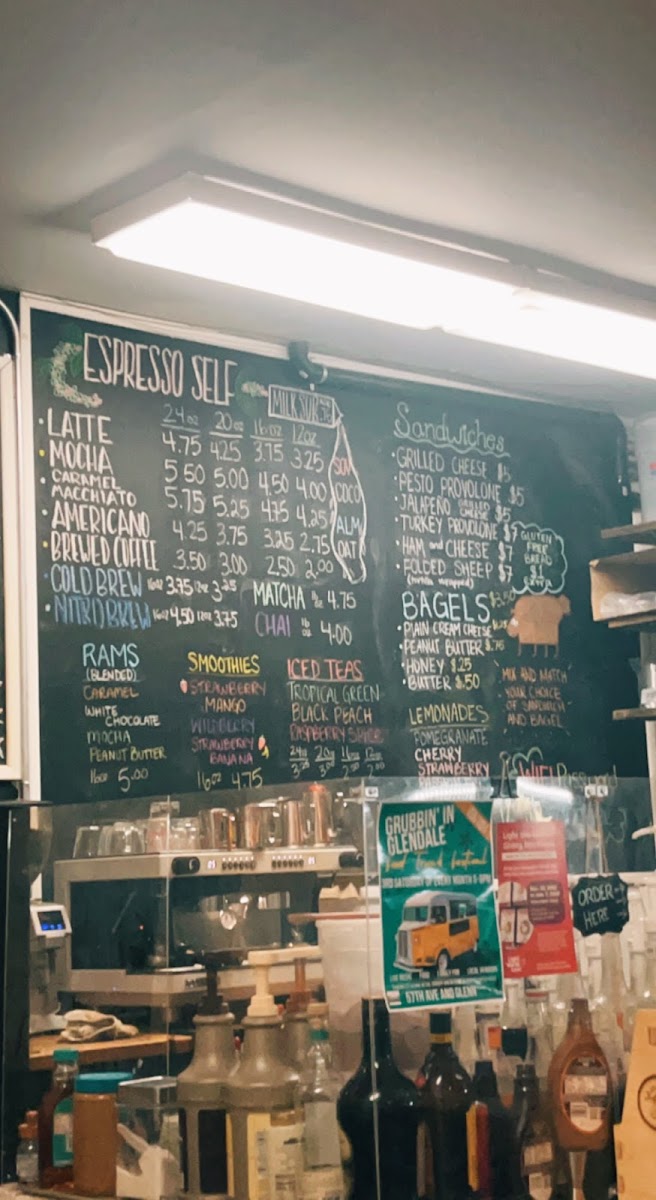 ESPRESSO SELF
24oz 20oz 16oz 12oz
LATTE 4.75 4.25 3.75 3.25
MOCHA 5.50 5.00 4.50 4.00
CARAMEL
MACCHIATO 5.75 5.25 4.75 4.25
AMERICANO 4.25 3.75 3.25 2.75
BREWED COFFEE 3.50 3.00 2.50 2.00
COLD BREW 16oz 3.75 12oz 3.25
NITRO BREW 16oz 4.50 12oz 3.75
MILK SUB
SOY
COCO
ALM
OAT
MATCHA 16oz 4.75
CHAI 16oz 4.00
RAMS
(BLENDED)
CARAMEL
WHITE
CHOCOLATE
MOCHA
PEANUT BUTTER
16oz 5.00
SMOOTHIES
STRAWBERRY
MANGO
WILDBERRY
STRAWBERRY
BANANA
16oz 4.75
ICED TEAS
TROPICAL GREEN
BLACK PEACH
RASPBERRY
24oz 20oz 16oz 12oz
Sandwiches
GRILLED CHEESE $5
PESTO PROVOLONE $5
JALAPEÑO GRILLED CHEESE $5
TURKEY PROVOLONE $7
HAM and CHEESE $7
FOLDED SHEEP $7
GLUTEN
FREE
BREAD
$1
BAGELS $3.50
PLAIN CREAM CHEESE
PEANUT BUTTER $.75
HONEY $.25
BUTTER $.50
MIX AND MATCH
YOUR CHOICE
OF SANDWICH
AND BAGEL
LEMONADES
POMEGRANATE
CHERRY
STRAWBERRY
WIFI Password
GRUBBIN' IN
GLENDALE
Food Truck Festival
3RD SATURDAY OF EVERY MONTH 5-9PM
57TH AVE AND GLENN
ORDER
HERE